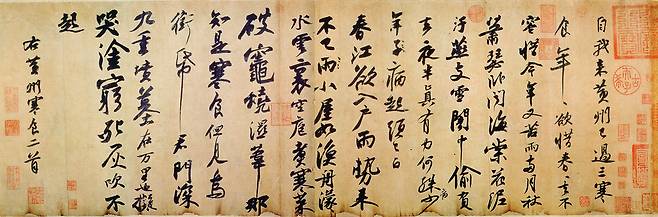 自我來黃州已過三寒
食年々欲惜春々去不
容惜今年又苦雨兩月秋
蕭瑟卧聞海棠花泥
汙燕支雪闇中偷負
去夜半真有力何殊少
年子病起頭已白
春江欲入戶雨勢來
不已雨小屋如漁舟濛
々水雲裏空庖煮寒菜
破竈燒濕葦那
知是寒食但見烏
銜帋君門深
九重墳墓在万里也擬
哭塗窮死灰吹不
起
右黃州寒食二首